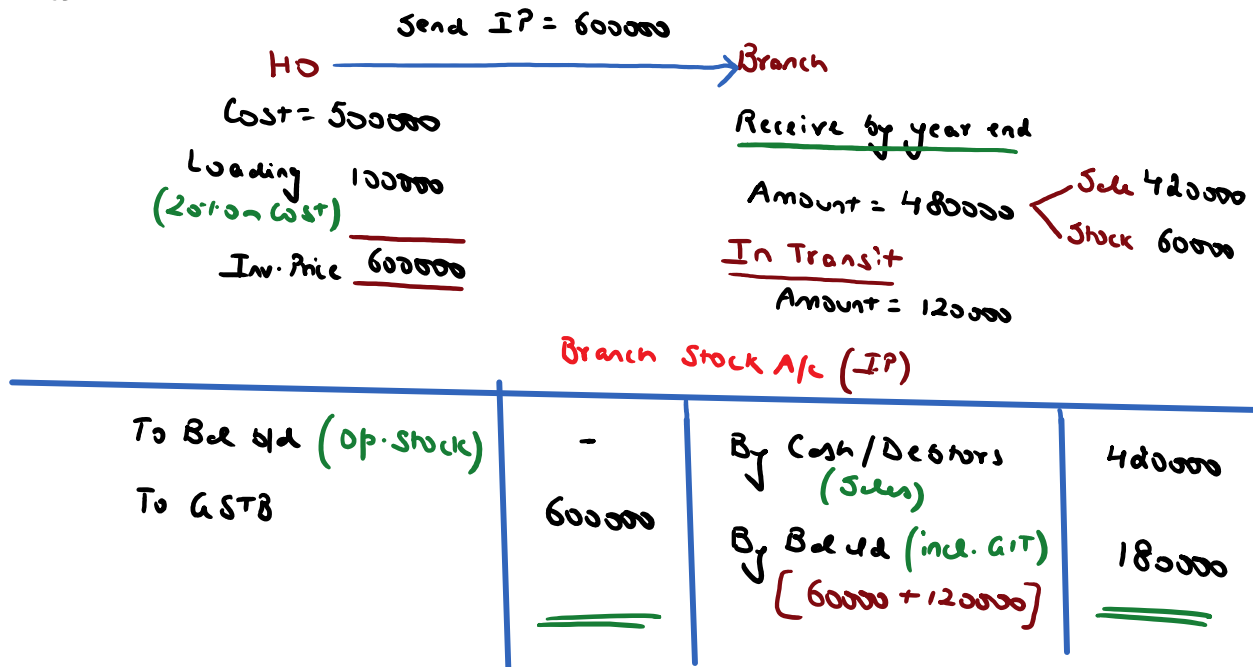 Send IP = 600000
HO
Branch
Cost = 500000
Loading 100000
(20% on Cost)
Inv. Price 600000
Receive by year end
Amount = 480000
Sale 420000
Stock 60000
In Transit
Amount = 120000
Branch Stock A/c (IP)
To Bal b/d (Op. Stock) -
To GSTB 600000
By Cash/Debtors 420000
(Sales)
By Bal c/d (incl. GIT) 180000
[60000 + 120000]